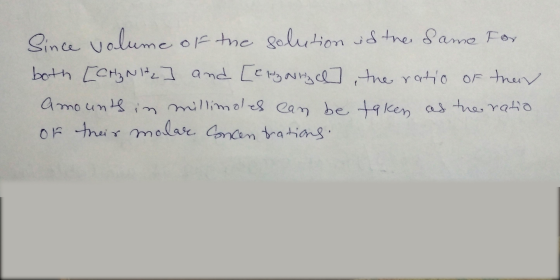 Since volume of the solution is the same for
both [CH3NH2] and [CH3NH3Cl], the ratio of their
amounts in millimoles can be taken as the ratio
of their molar concentrations.